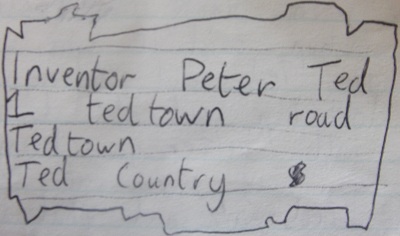 Inventor Peter Ted
1 ted town road
Tedtown
Ted Country